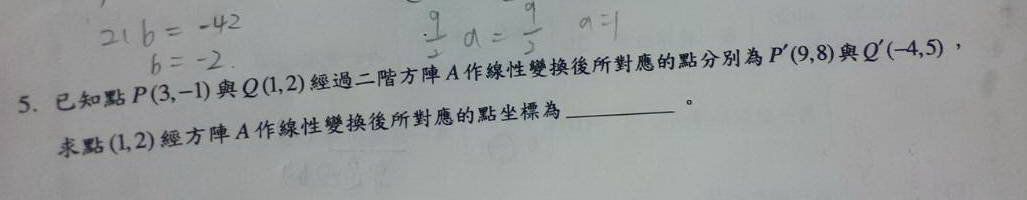 21b = -42
b = -2.
9/2 a = 9/2 a=1
5. 已知點 P(3,-1) 與 Q(1,2) 經過二階方陣 A 作線性變換後所對應的點分別為 P′(9,8) 與 Q′(-4,5)，
求點 (1,2) 經方陣 A 作線性變換後所對應的點坐標為__________。